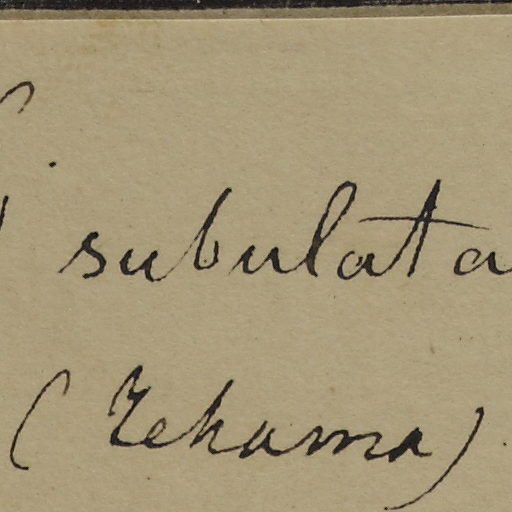 subulata
(Tehama)